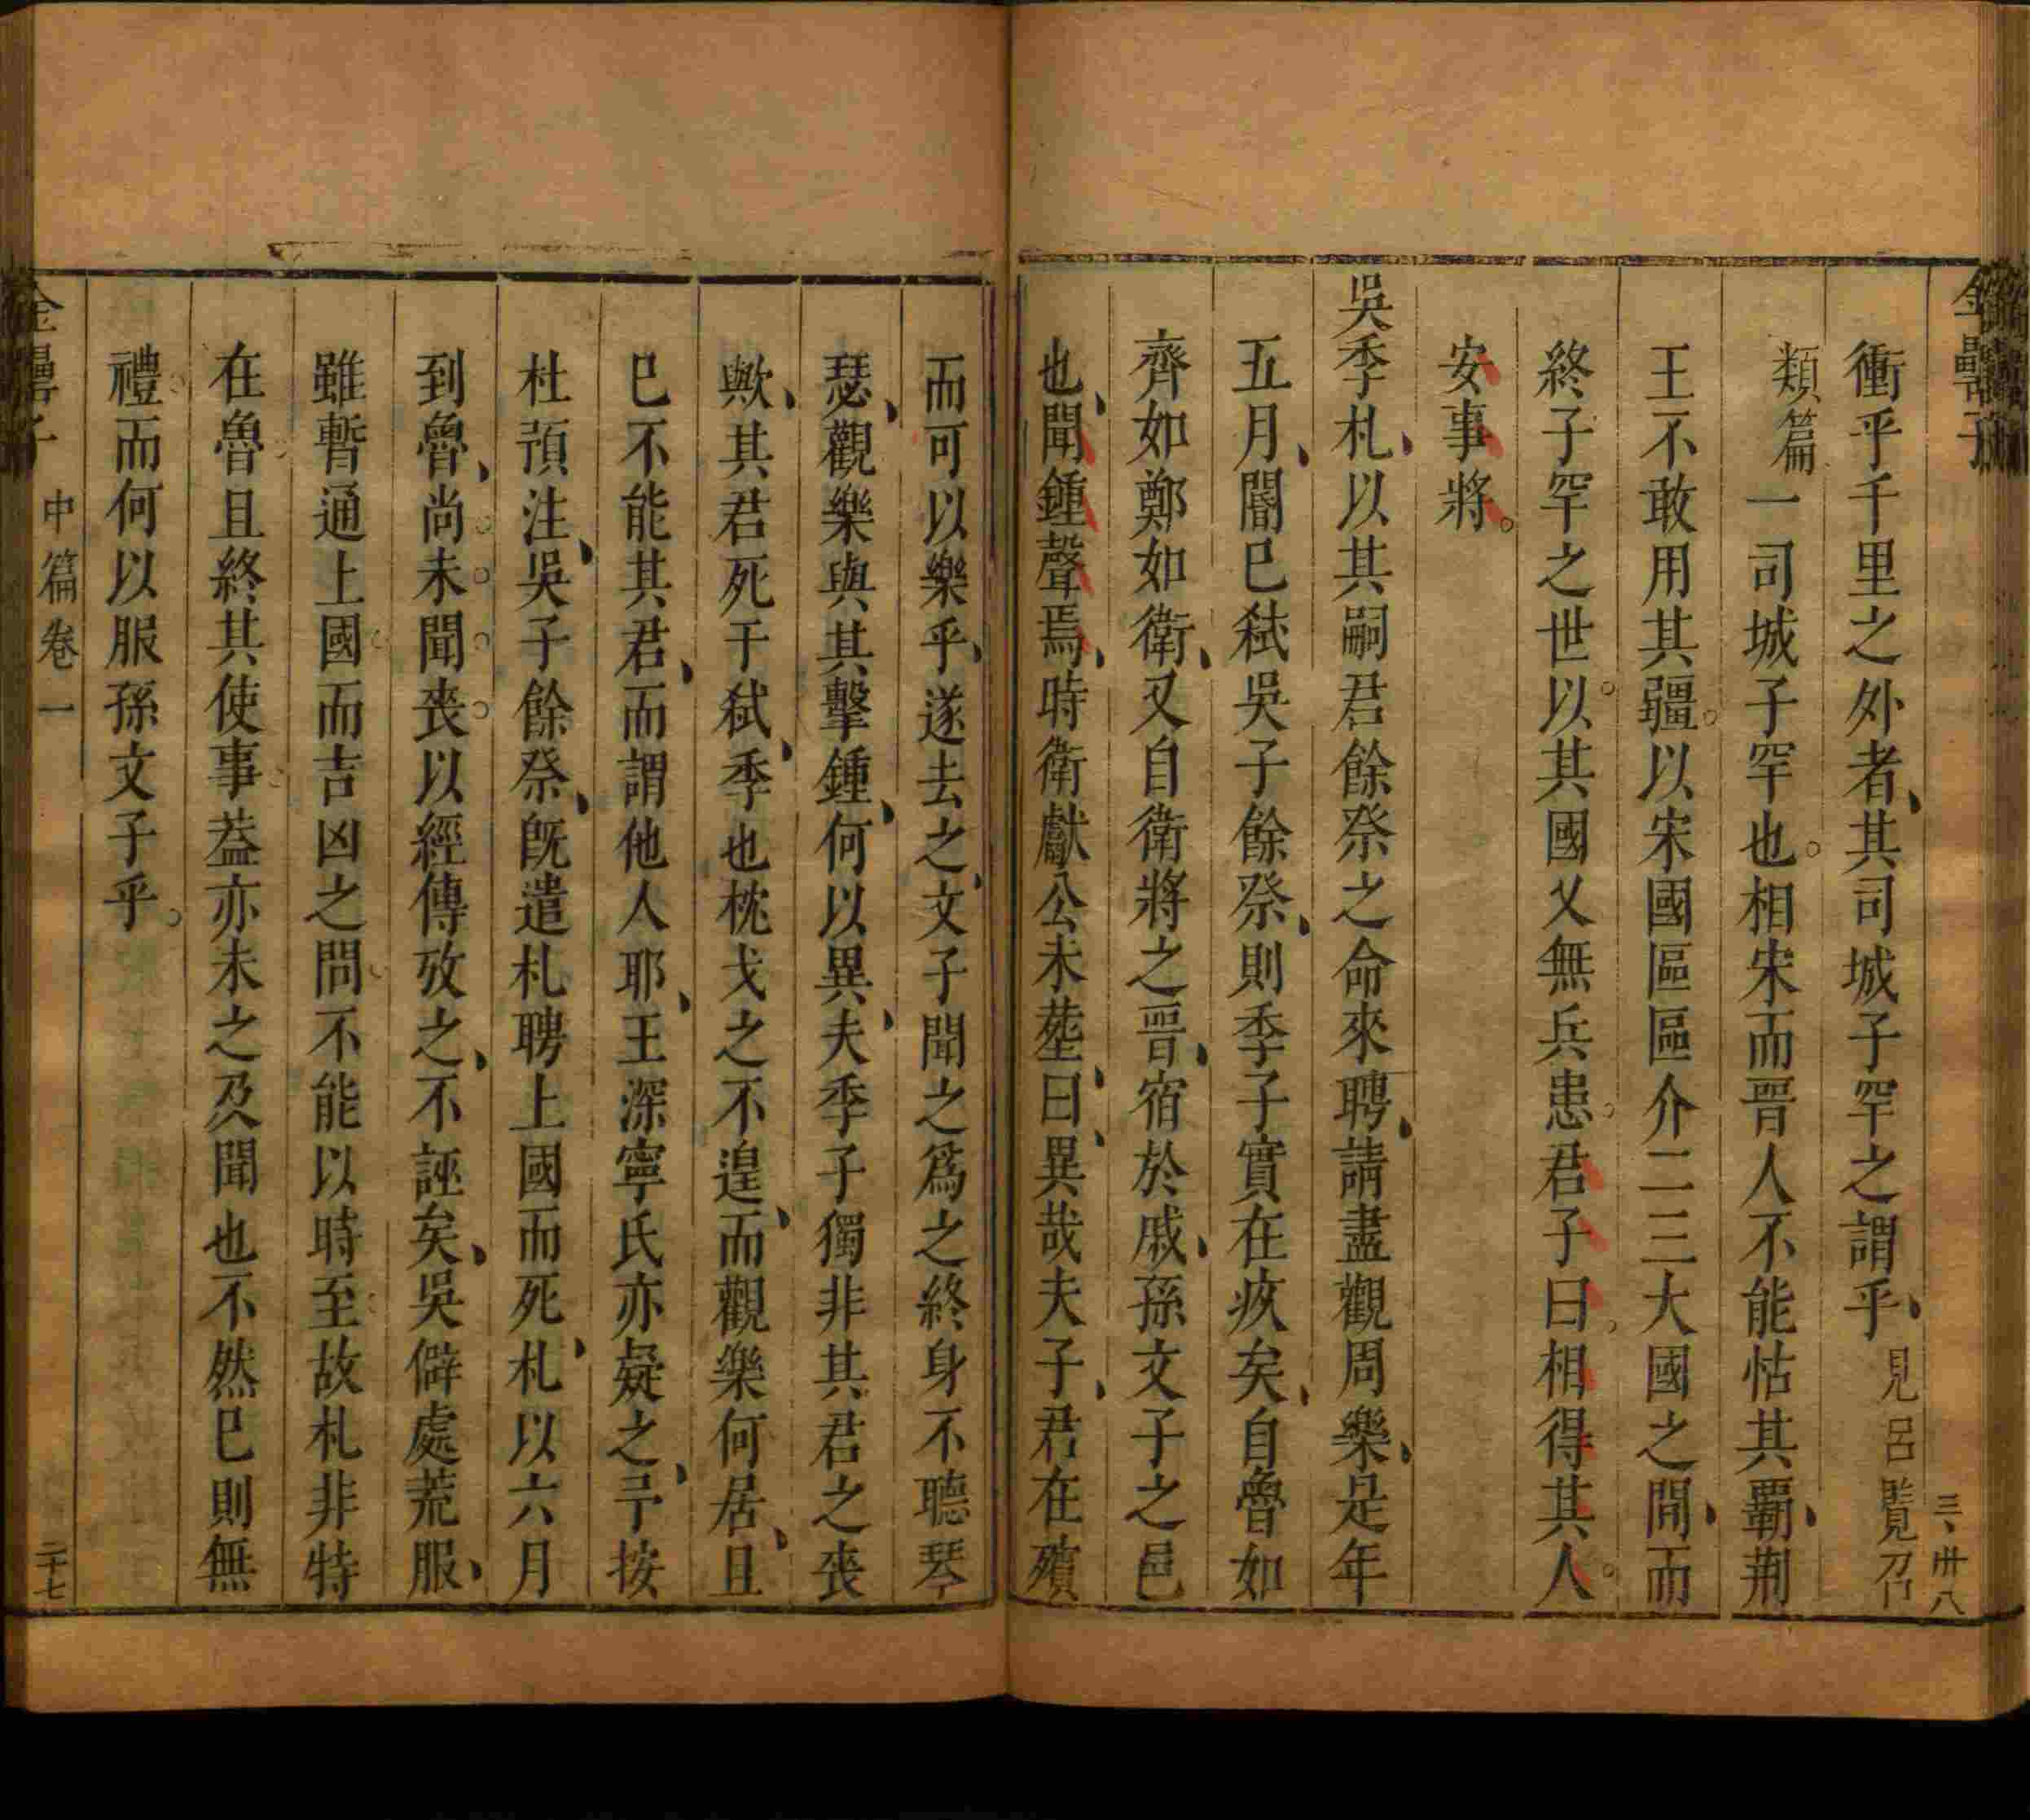 金罍子
衝乎千里之外者其司城子罕之謂乎見呂覽召
類篇一司城子罕也相宋而晉人不能怙其覇荆
王不敢用其疆以宋國區區介二三大國之間而
終子罕之世以其國乂無兵患君子曰相得其人
安事將
吳季札以其嗣君餘祭之命來聘請盡觀周樂是年
五月閽已弑吳子餘祭則季子實在疚矣自魯如
齊如鄭如衛又自衛將之晉宿於戚孫文子之邑
也聞鍾聲焉時衛獻公未塟曰異哉夫子君在殯
而可以樂乎遂去之文子聞之爲之終身不聽琴
瑟觀樂與其擊鍾何以異夫季子獨非其君之喪
歟其君死于弑季也枕戈之不遑而觀樂何居且
已不能其君而謂他人耶王深寧氏亦疑之予按
杜預注吳子餘祭旣遣札聘上國而死札以六月
到魯尚未聞喪以經傳攷之不誣矣吳僻處荒服
雖暫通上國而吉凶之問不能以時至故札非特
在魯且終其使事葢亦未之及聞也不然已則無
禮而何以服孫文子乎
金罍子
中篇卷一
二十七